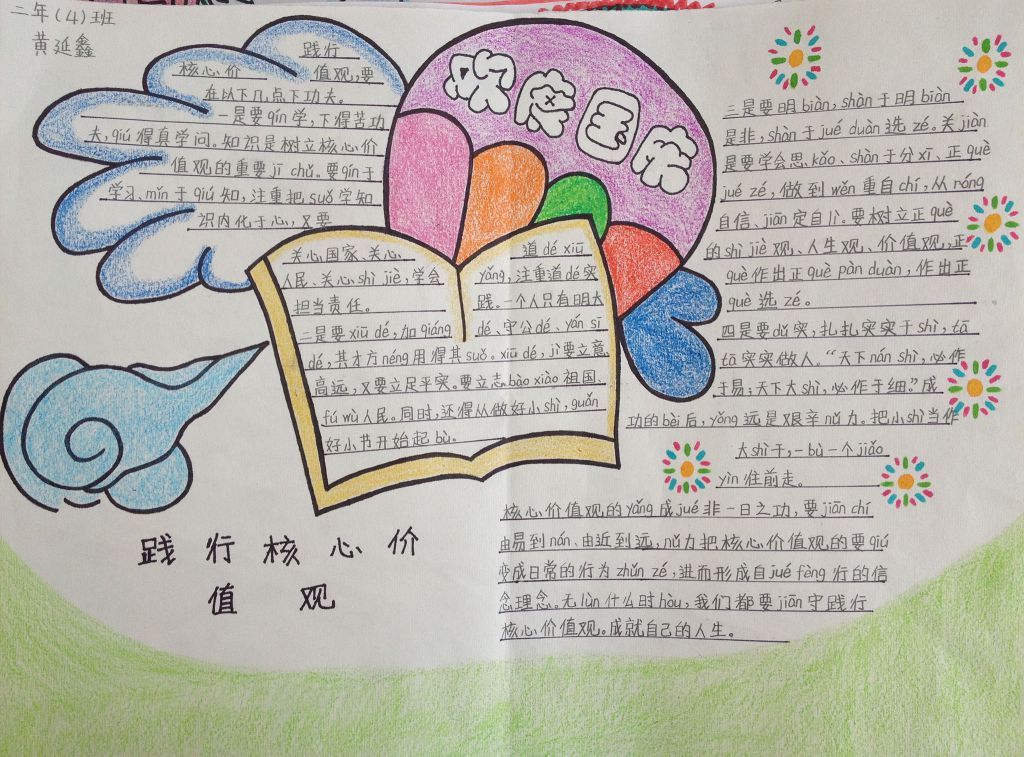 二年(4)班
黄延鑫
欢度国庆
践行
核心价值观,要
在以下几点下功夫。
一是要qín学,下得苦功
夫,qiú得真学问。知识是树立核心价
值观的重要jī chǔ。要qín于
学习、mǐn于qiú知,注重把suǒ学知
识内化于心,又要
关心国家、关心
人民、关心shì jiè,学会
担当责任。
二是要xiū dé,加qiáng
道dé xiū
yǎng,注重道dé实
践。一个人只有明大
dé、守公dé、yán sī
dé,其才方néng用得其suǒ。xiū dé,jì要立意
高远,又要立足平实。要立志bào xiào祖国、
fú wù人民。同时,还得从做好小shì,guǎn
好小节开始起bù。
三是要明biàn,shàn于明biàn
是非,shàn于jué duàn选zé。关jiàn
是要学会思kǎo、shàn于分xī、正què
jué zé,做到wěn重自chí,从róng
自信、jiān定自lì。要树立正què
的shì jiè观、人生观、价值观,正
què作出正què pàn duàn,作出正
què选zé。
四是要dǔ实,扎扎实实于shì,tā
tā实实做人。“天下nán shì,必作
于易;天下大shì,必作于细。”成
功的bèi后,yǒng远是艰辛nǔ力。把小shì当作
大shì干,一bù一个jiǎo
yìn往前走。
核心价值观的yǎng成jué非一日之功,要jiān chí
由易到nán、由近到远,nǔ力把核心价值观的要qiú
变成日常的行为zhǔn zé,进而形成自jué fèng行的信
念理念。无lùn什么时hòu,我们都要jiān守践行
核心价值观。成就自己的人生。
践行核心价
值观